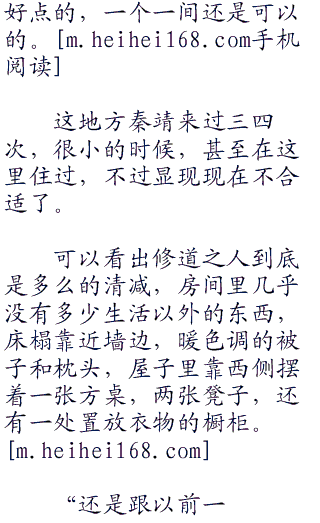 好点的，一个一间还是可以
的。[m.heihei168.com手机
阅读]
这地方秦靖来过三四
次，很小的时候，甚至在这
里住过，不过显现现在不合
适了。
可以看出修道之人到底
是多么的清减，房间里几乎
没有多少生活以外的东西，
床榻靠近墙边，暖色调的被
子和枕头，屋子里靠西侧摆
着一张方桌，两张凳子，还
有一处置放衣物的橱柜。
[m.heihei168.com]
“还是跟以前一